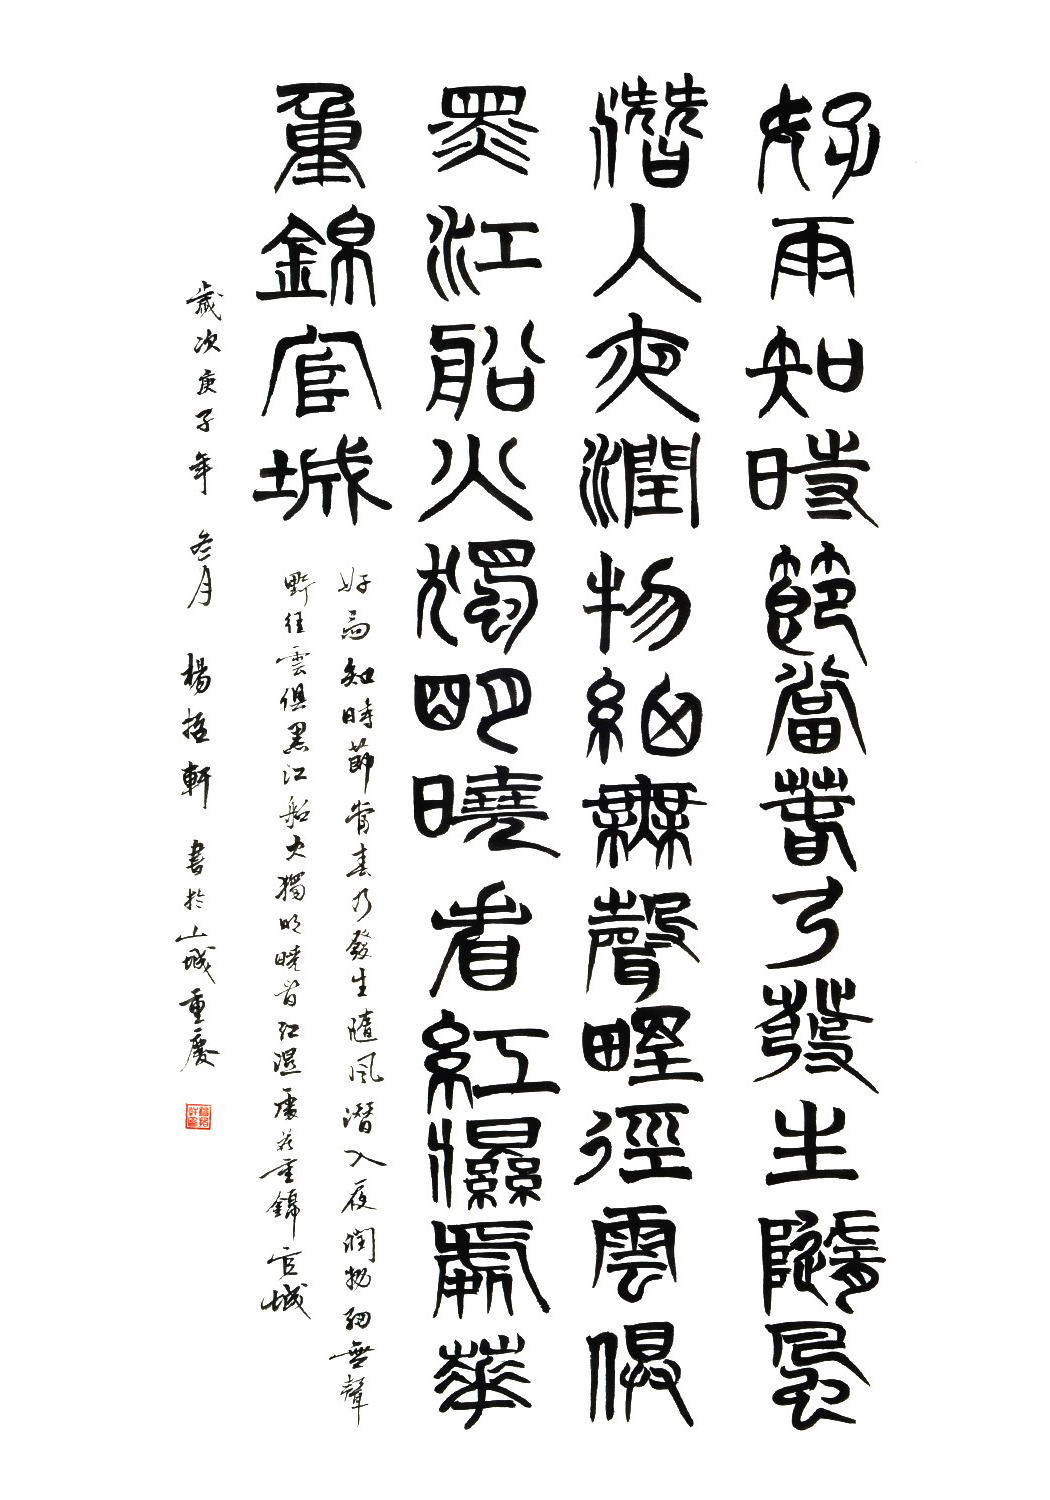 好雨知時節當春乃發生隨風
潛入夜潤物細無聲野徑雲俱
黑江船火獨明曉看紅濕處華
重錦官城
好雨知時節當春乃發生隨風潛入夜潤物細無聲
野徑雲俱黑江船火獨明曉看紅濕處花重錦官城
歲次庚子年 冬月 楊軒 書於山城重慶